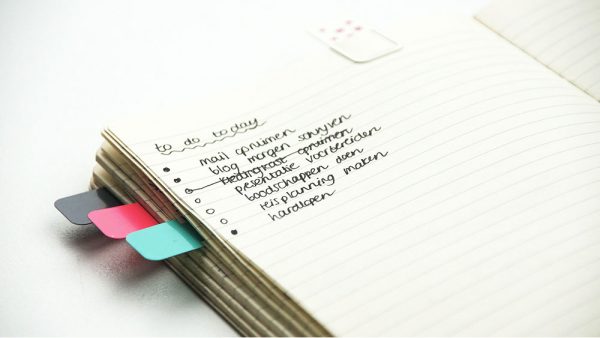 to do today
mail opruimen
blog morgen schrijven
kledingkast opruimen
presentatie voorbereiden
boodschappen doen
reisplanning maken
hardlopen